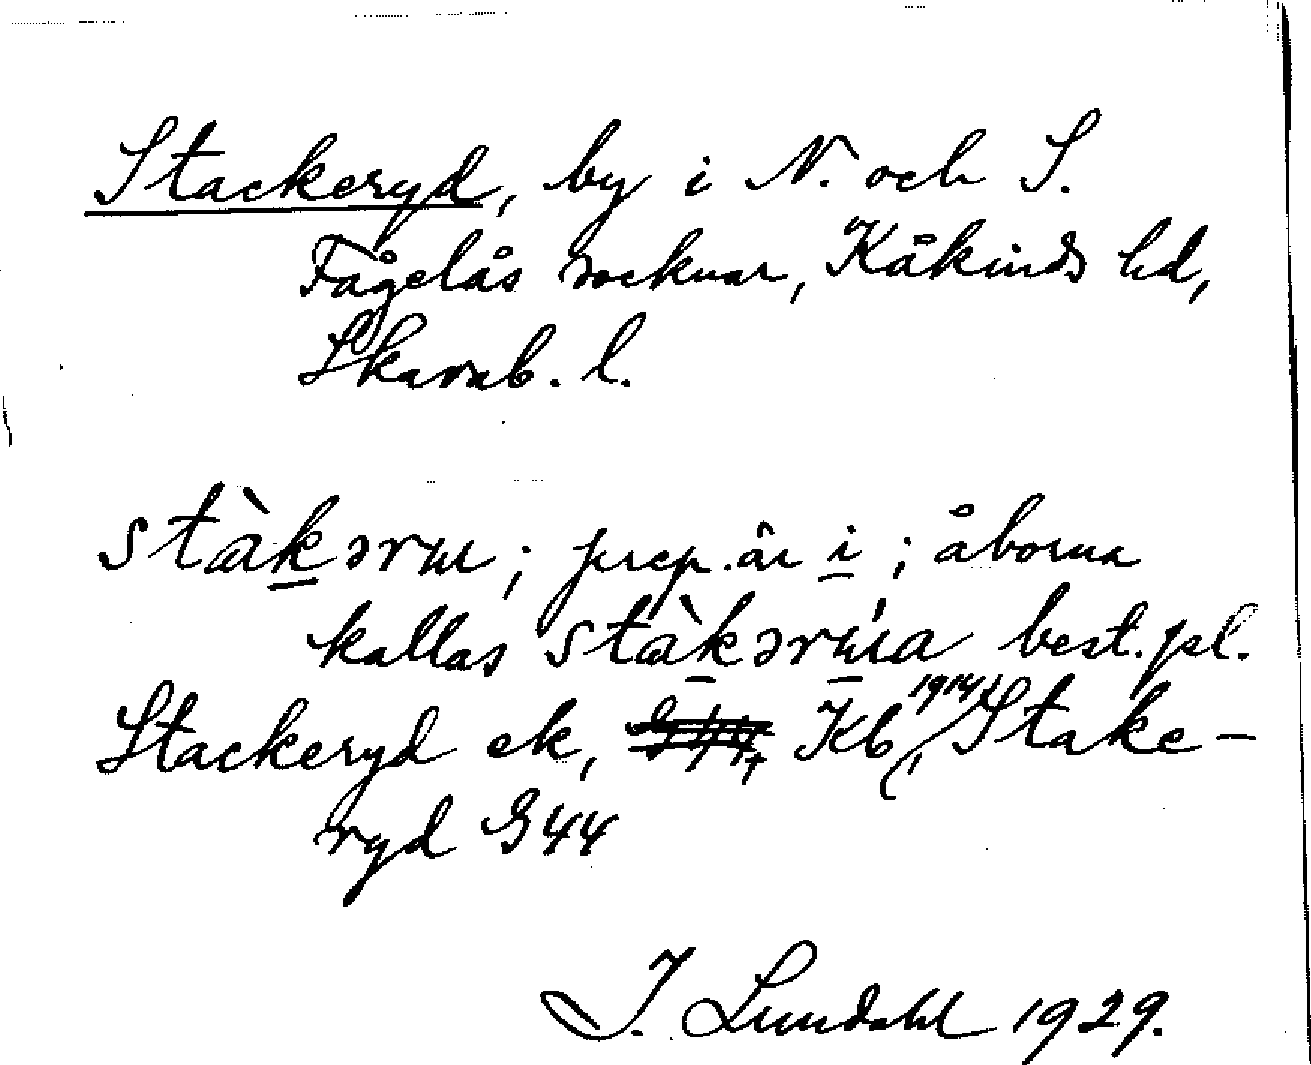 Stackeryd, by i N. och S.
Fågelås socknar, Kåkinds hd,
Skarab. l.
stàkərɯ; prep. är i; åborna
kallas stàkərɯ́a best. pl.
Stackeryd ek, Kb 1914, Stake-
ryd G44
I. Lundahl 1929.